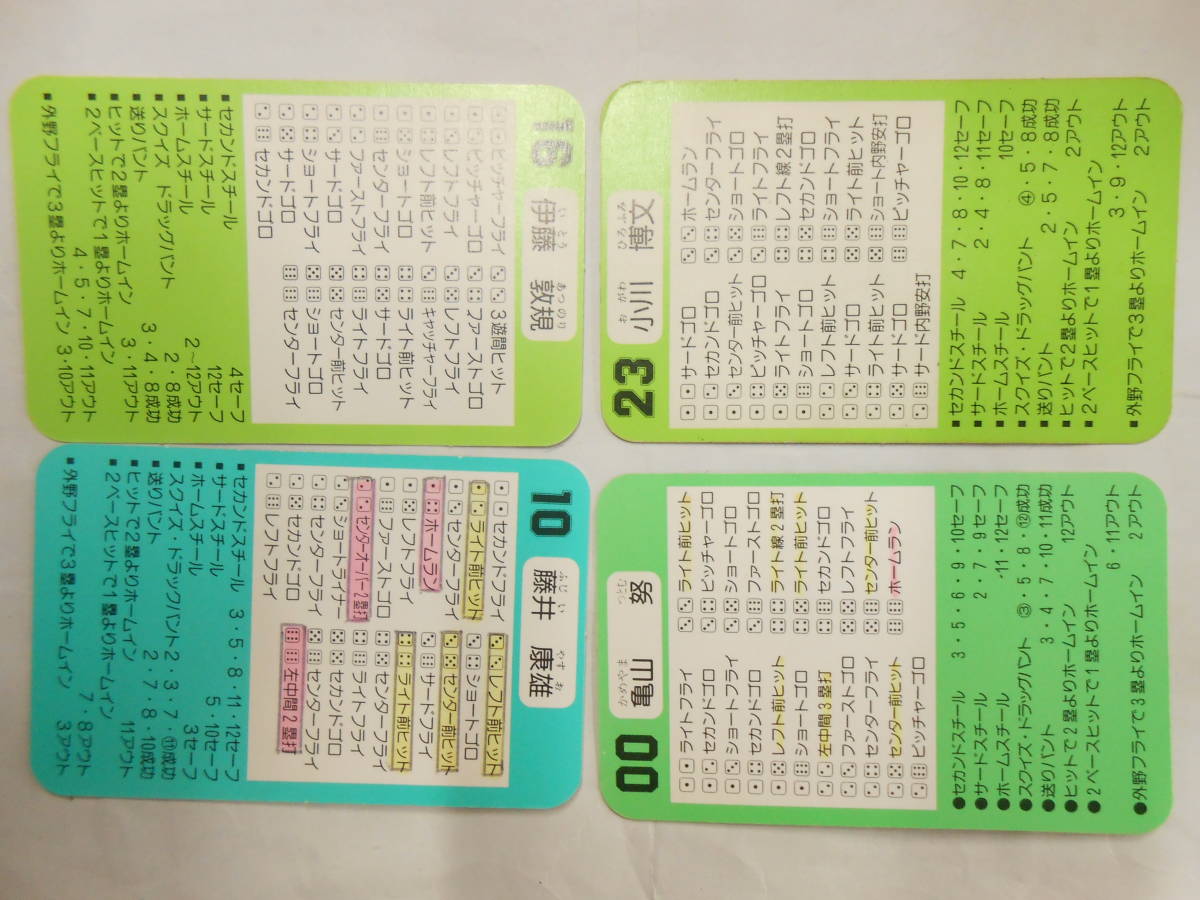 16
伊藤 敦規
いとう あつのり
ピッチャーフライ
ピッチャーゴロ
レフトフライ
レフト前ヒット
ショートゴロ
センターフライ
ファーストフライ
サードゴロ
ショートフライ
サードゴロ
セカンドゴロ
3遊間ヒット
ファーストゴロ
レフトフライ
キャッチャーフライ
ライト前ヒット
サードゴロ
ライトフライ
センター前ヒット
ショートゴロ
センターフライ
■セカンドスチール 4セーフ
■サードスチール 12セーフ
■ホームスチール 2〜12アウト
■スクイズ ドラッグバント 2・8成功
■送りバント 3・4・8成功
■ヒットで2塁よりホームイン 3・11アウト
■2ベースヒットで1塁よりホームイン
4・5・7・10・11アウト
■外野フライで3塁よりホームイン 3・10アウト
23
小川 博文
おがわ ひろふみ
サードゴロ
セカンドゴロ
センター前ヒット
ピッチャーゴロ
ライトフライ
ショートゴロ
レフト前ヒット
サードゴロ
ライト前ヒット
サードゴロ
サード内野安打
ホームラン
センターフライ
ショートゴロ
ライトフライ
レフト線2塁打
セカンドゴロ
ショートフライ
ライト前ヒット
ショート内野安打
ピッチャーゴロ
■セカンドスチール 4・7・8・10・12セーフ
■サードスチール 2・4・8・11セーフ
■ホームスチール 10セーフ
■スクイズ・ドラッグバント ④・5・8成功
■送りバント 2・5・7・8成功
■ヒットで2塁よりホームイン 2アウト
■2ベースヒットで1塁よりホームイン
3・9・12アウト
■外野フライで3塁よりホームイン 2アウト
10
藤井 康雄
ふじい やすお
セカンドフライ
ライト前ヒット
センターフライ
ホームラン
レフトフライ
ファーストゴロ
センターオーバー2塁打
ショートライナー
センターフライ
セカンドゴロ
レフトフライ
レフト前ヒット
ショートゴロ
センター前ヒット
サードフライ
ライト前ヒット
センターフライ
セカンドゴロ
センターフライ
左中間2塁打
■セカンドスチール 3・5・8・11・12セーフ
■サードスチール 5・10セーフ
■ホームスチール 3セーフ
■スクイズ・ドラックバント2・3・7・⑪成功
■送りバント 2・7・8・10成功
■ヒットで2塁よりホームイン 11アウト
■2ベースヒットで1塁よりホームイン
7・8アウト
■外野フライで3塁よりホームイン 3アウト
00
亀山 努
かめやま つとむ
ライトフライ
セカンドゴロ
ショートフライ
セカンドゴロ
レフト前ヒット
ショートゴロ
左中間3塁打
ファーストゴロ
センターフライ
センター前ヒット
ピッチャーゴロ
ライト前ヒット
ピッチャーゴロ
ショートゴロ
ファーストゴロ
ライト線2塁打
ライト前ヒット
セカンドゴロ
レフトフライ
センター前ヒット
ホームラン
●セカンドスチール 3・5・6・9・10セーフ
●サードスチール 2・7・9セーフ
●ホームスチール ・11・12セーフ
●スクイズ・ドラッグバント ③・5・8・⑫成功
●送りバント 3・4・7・10・11成功
●ヒットで2塁よりホームイン 12アウト
●2ベースヒットで1塁よりホームイン
6・11アウト
●外野フライで3塁よりホームイン 2アウト